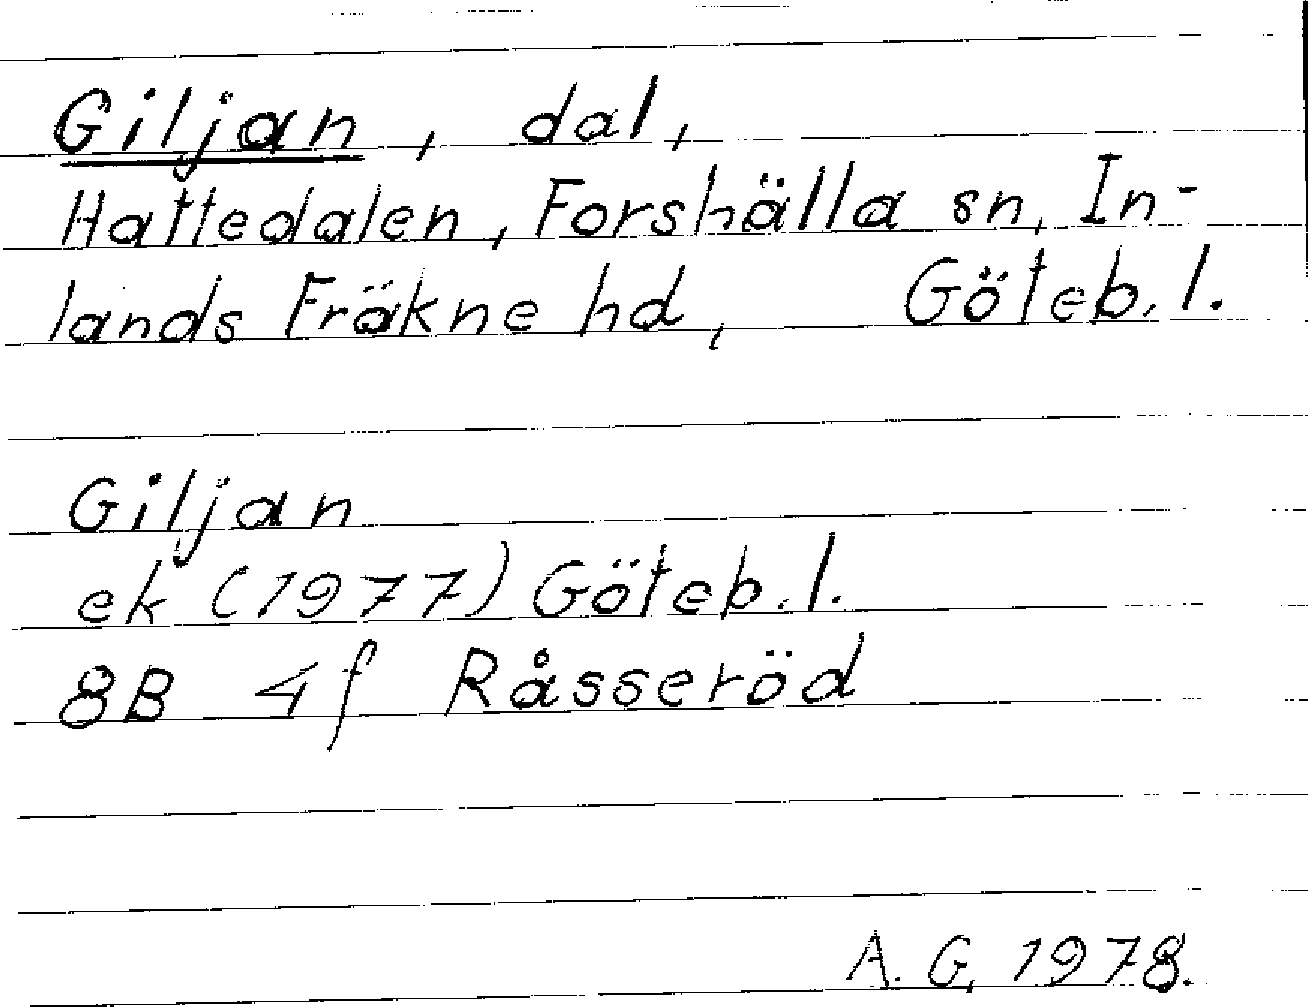 Giljan, dal,
Hattedalen, Forshälla sn, In-
lands Fräkne hd, Göteb. l.
Giljan
ek (1977) Göteb. l.
8B 4f Råsseröd
A. G. 1978.